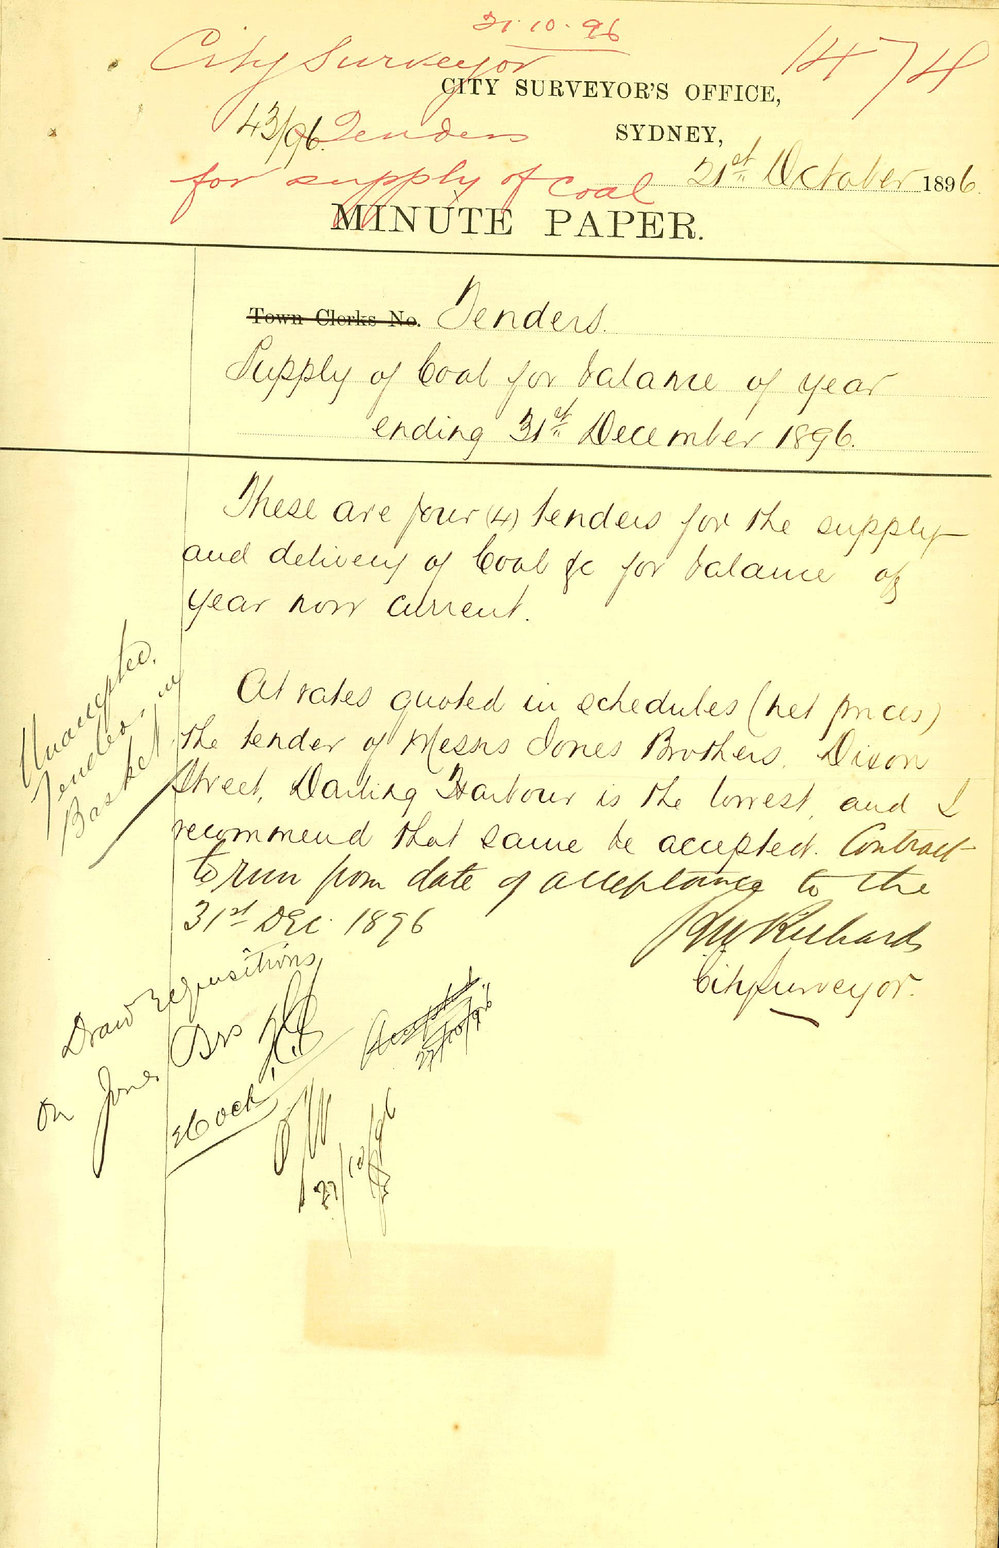 21.10.96
1474
City Surveyor
CITY SURVEYOR'S OFFICE,
43/96. Tenders
SYDNEY,
for supply of coal
21st October 1896.
MINUTE PAPER.
Town Clerks No. Tenders.
Supply of Coal for balance of year
ending 31st December 1896.
These are four (4) tenders for the supply
and delivery of Coal &c for balance of
year now current.
At rates quoted in schedules (net prices)
the tender of Messrs Jones Brothers, Dixon
Street, Darling Harbour is the lowest, and I
recommend that same be accepted. Contract
to run from date of acceptance to the
31st Dec. 1896
RW Richards
City Surveyor.
Unaccepted
Tenders in
Basket
Draw requisitions
on Jones Bros
Accepted
27/10/96
27/10/96